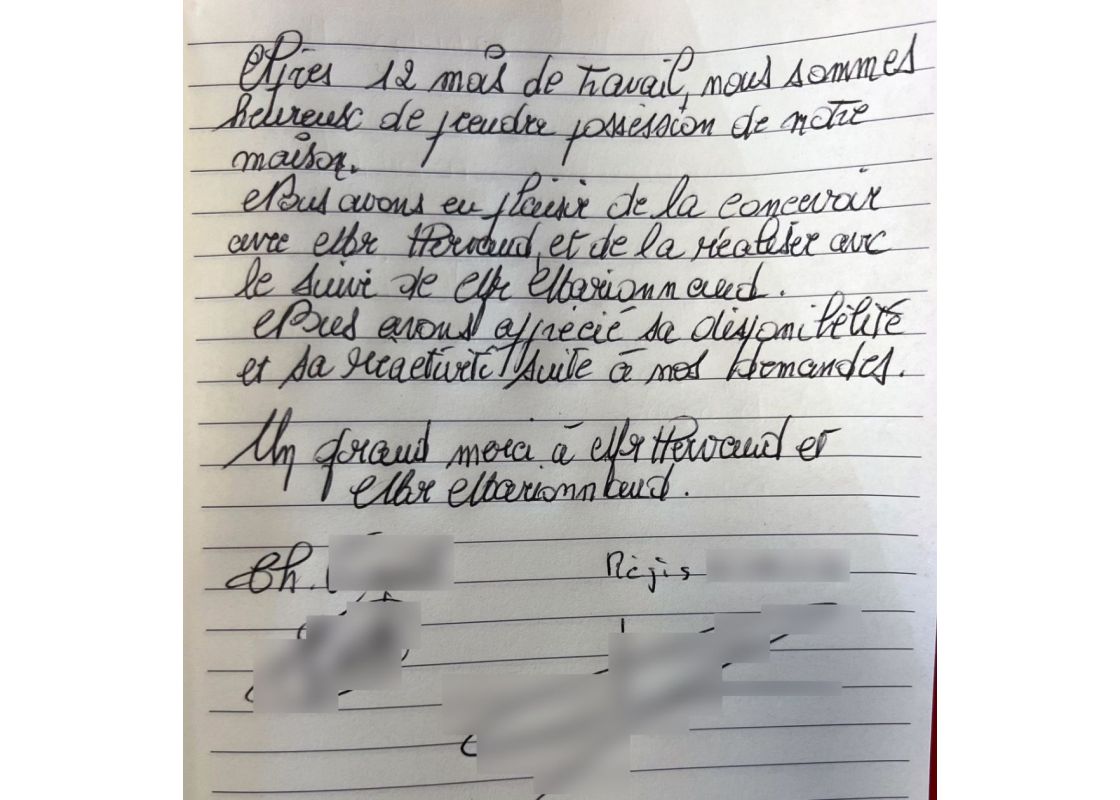 Après 12 mois de travail, nous sommes
heureux de prendre possession de notre
maison.
Nous avons eu plaisir de la concevoir
avec Mr Hervaud, et de la réaliser avec
le suivi de Mr Marionnaud.
Nous avons apprécié sa disponibilité
et sa réactivité suite à nos demandes.
Un grand merci à Mr Hervaud et
Mr Marionnaud.
Ch.
Régis